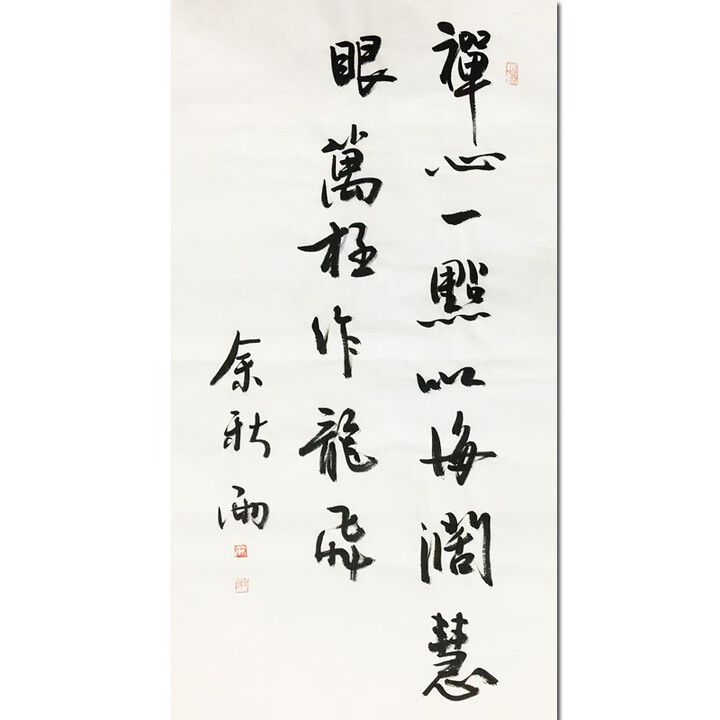 禪心一點似海濶慧
眼萬柱作龍飛
余秋雨